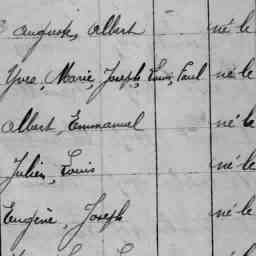 Auguste, Albert né le
Yves, Marie, Joseph, Louis, Paul né le
Albert, Emmanuel né le
Julien, Louis né le
Eugène, Joseph né le
né le